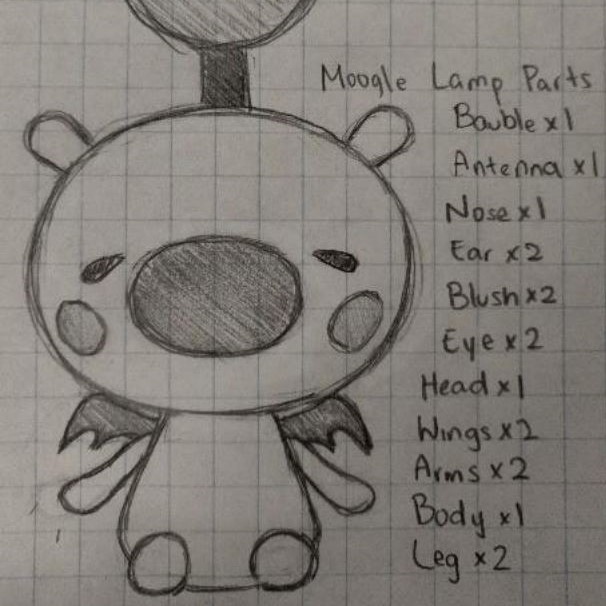 Moogle Lamp Parts
Bauble x1
Antenna x1
Nose x1
Ear x2
Blush x2
Eye x2
Head x1
Wings x2
Arms x2
Body x1
Leg x2